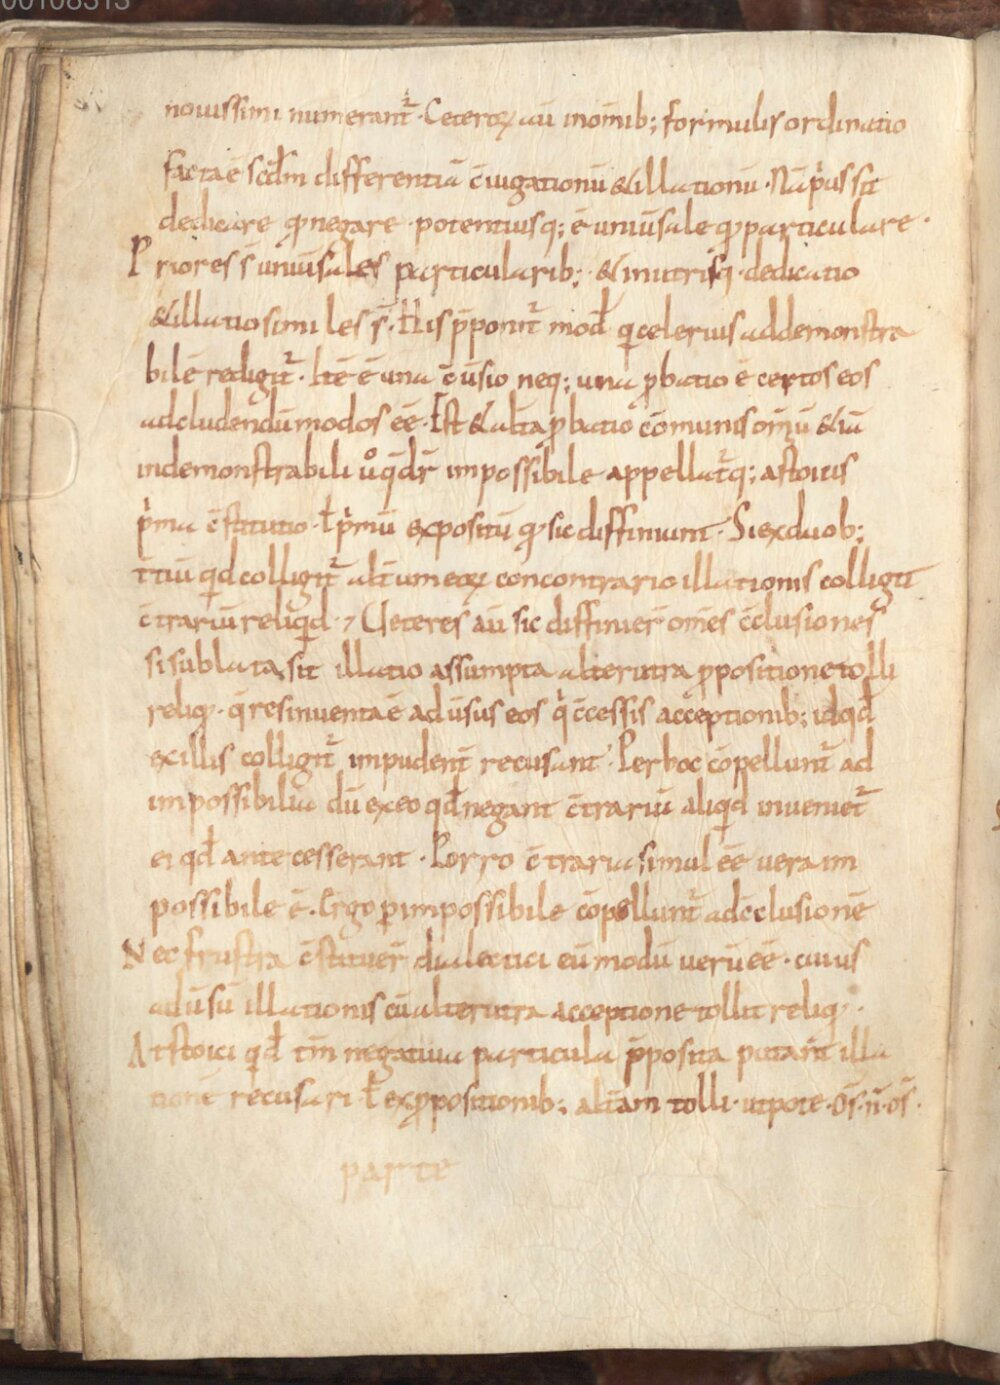 00108313
nouissimi numerant᷑ · Ceteroꝝ aū inomīb; formulis ordinatio
facta ē scd̄m differentiā c̄iugationū & illationū · Nā p̾us sit
dedicare ꝙ negare · potentiusq; ē uniūsale ꝙ particulare ·
Priores s̄ uniūsales particularib; · & in utrisq; dedicatio
& illatio similes s̄ · His p̄ponit᷑ mod̄ q celerius ad demonstra
bilē redigit᷑ · Itē ē una c̄uersio neq; una ꝓbatio ē certos eos
adcludendū modos ēē · Est & alta ꝓbatio cōmunis omīū & iā
indemonstrabiliū q̄ dr̄ impossibile appellat᷑q; a stoicis
p̾ma c̄stitutio · ł p̾mū expositū ꝙ sic diffiniunt · Si ex duob;
t̄tiū qd colligit᷑ alt̄um eoꝝ con contrario illationis colligit
c̄trariū reliqd · Ueteres aū sic diffinier̄ om̄es c̄clusiones
si sublata sit illatio assumpta alterutra ꝓpositione tolli
reliq · q̄ res inuenta ē aduersus eos q̾ c̄cessis acceptionib; id qd̄
ex illis colligit᷑ impudent̄ recusant · Per hoc cōpellunt᷑ ad
impossibilia dū ex eo qd̄ negant c̄trariū aliqd inueniet᷑
ei qd̄ ante cesserant · Porro c̄traria simul ēē uera im
possibile ē · Ergo ꝑ impossibile cōpellunt᷑ ad c̄clusionē
Nec frustra c̄stituer̄ dialectici eū modū uerū ēē · cuius
aduersū illationis cū alterutra acceptione tollit reliq ·
At stoici qd̄ tm̄ negatiua particula p̄posita putant illa
tionē recusari ł ex ꝓpositionib; alt̄am tolli · utpote · ōs · n̄ · ōs ·
parte